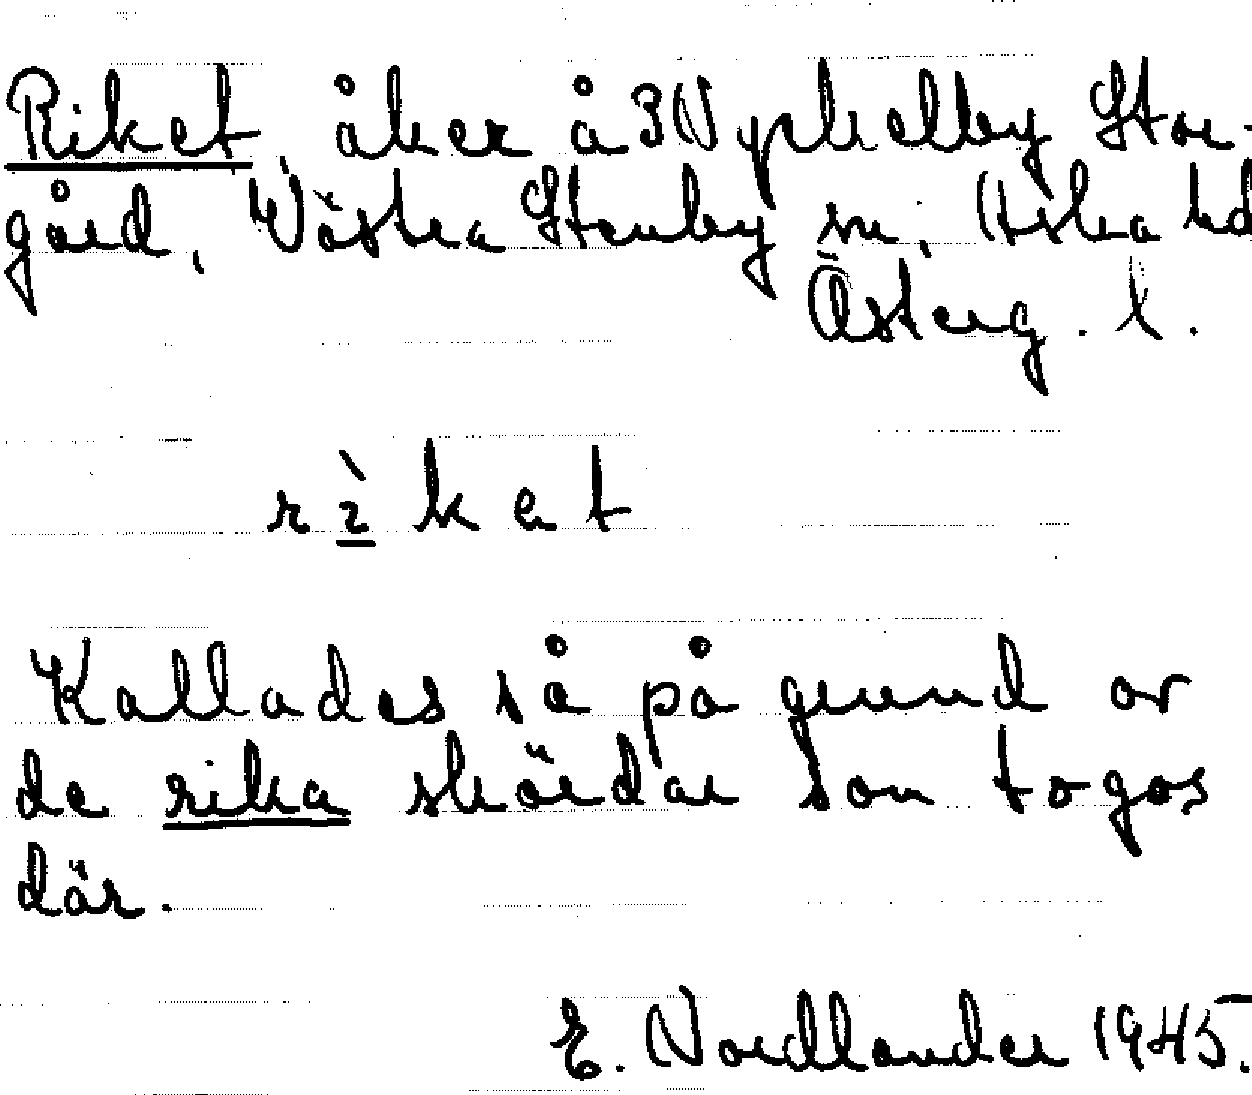 Riket, åker å 3 Nykelby Stor-
gård, Västra Stenby sn, Aska hd
Österg. l.
rìket
Kallades så på grund av
de rika skördar som togos
där.
E. Nordlander 1945.